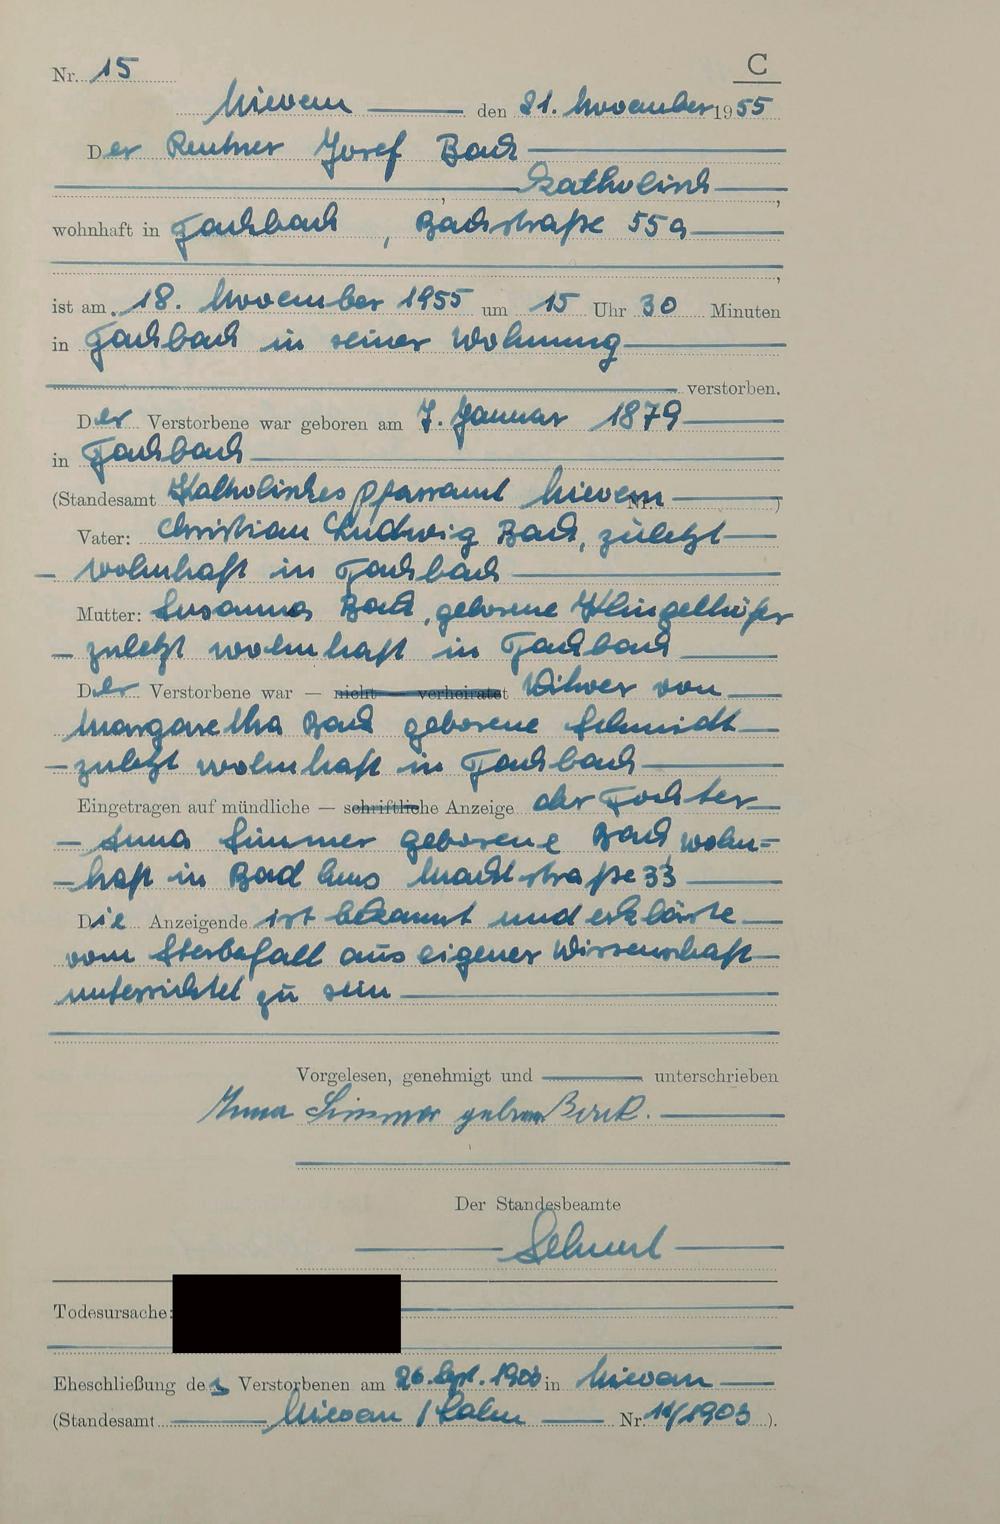 Nr. 15 C
Nievern den 21. November 1955
Der Rentner Josef Bach
katholisch,
wohnhaft in Fachbach, Bachstraße 55a
,
ist am 18. November 1955 um 15 Uhr 30 Minuten
in Fachbach in seiner Wohnung
verstorben.
Der Verstorbene war geboren am 7. Januar 1879
in Fachbach
(Standesamt Katholisches Pfarramt Nievern Nr. )
Vater: Christian Ludwig Bach, zuletzt
wohnhaft in Fachbach
Mutter: Susanna Bach, geborene Klingelhöfer
zuletzt wohnhaft in Fachbach
Der Verstorbene war — nicht verheiratet Witwer von
Margaretha Bach geborene Schmidt
zuletzt wohnhaft in Fachbach
Eingetragen auf mündliche — schriftliche Anzeige der Tochter
Anna Simmer geborene Bach wohn=
haft in Bad Ems Marktstraße 33
Die Anzeigende ist bekannt und erklärte
vom Sterbefall aus eigener Wissenschaft
unterrichtet zu sein
Vorgelesen, genehmigt und unterschrieben
Anna Simmer geboren Bach.
Der Standesbeamte
Todesursache:
Eheschließung des Verstorbenen am 26. Sept. 1903 in Nievern
(Standesamt Nievern / Lahn Nr. 14/1903 ).